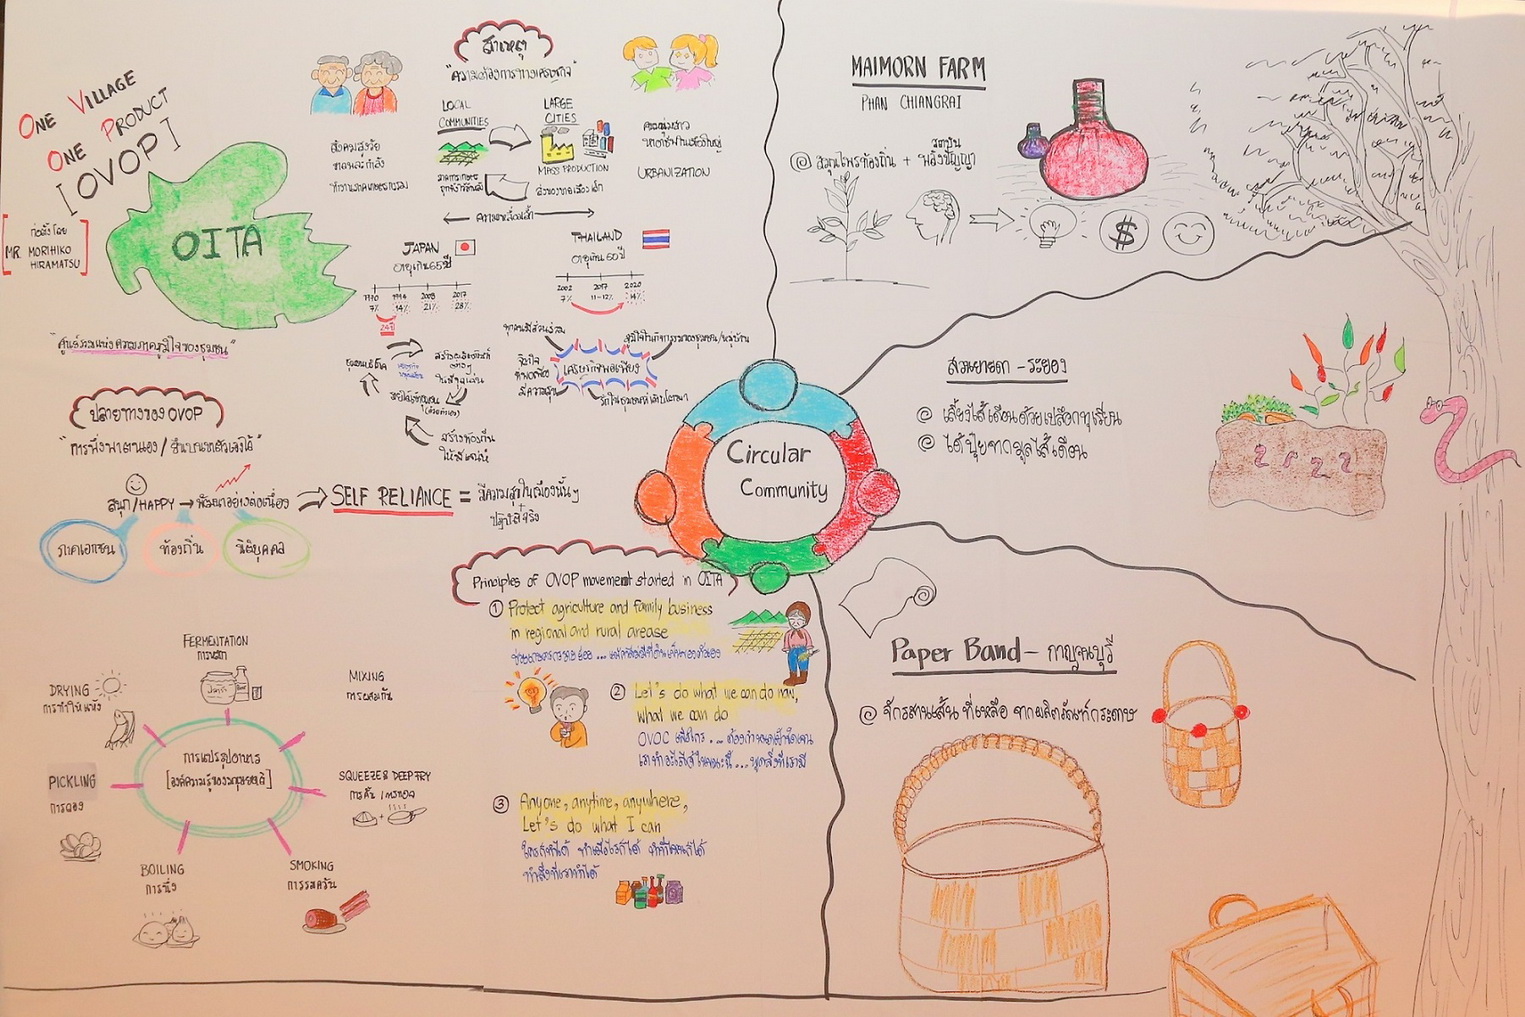 ONE VILLAGE
ONE PRODUCT
[OVOP]
ก่อตั้งโดย
MR. MORIHIKO
HIRAMATSU
OITA
"ศูนย์รวมแห่งความภาคภูมิใจของชุมชน"
สาเหตุ
"ความต้องการทางเศรษฐกิจ"
สังคมสูงวัย
ขาดแคลนกำลัง
ทำงานภาคเกษตรกรรม
LOCAL
COMMUNITIES
LARGE
CITIES
MASS PRODUCTION
ภาคการเกษตร
คนหนุ่มสาว
URBANIZATION
ความเหลื่อมล้ำ
JAPAN
อายุเกิน 65 ปี
1970 1994 2008 2017
7% 14% 21% 28%
24 ปี
THAILAND
อายุเกิน 60 ปี
2002 2017 2020
7% 11-12% 14%
ทุกคนมีส่วนร่วม
ภูมิใจในกิจกรรมของชุมชน/หมู่บ้าน
เศรษฐกิจพอเพียง
มีความสุข
สร้างท้องถิ่น
ให้มีเสน่ห์
ปลายทางของ OVOP
"การพึ่งพาตนเอง/
สนุก/HAPPY → พัฒนาอย่างต่อเนื่อง
SELF RELIANCE = มีความสุขในเมืองนั้นๆ
+
ปฏิบัติจริง
ภาคเอกชน
ท้องถิ่น
นิติบุคคล
Circular
Community
FERMENTATION
การหมัก
DRYING
การทำให้แห้ง
MIXING
การผสมกัน
การแปรรูปอาหาร
[องค์ความรู้ของมนุษยชาติ]
PICKLING
การดอง
SQUEEZE & DEEP FRY
การคั้น / การทอด
BOILING
การนึ่ง
SMOKING
การรมควัน
Principles of OVOP movement started in OITA
① Protect agriculture and family business
in regional and rural arease
② Let's do what we can do now,
what we can do
③ Anyone, anytime, anywhere,
Let's do what I can
ใครก็ทำได้ ทำเมื่อไรก็ได้ ทำที่ไหนก็ได้
ทำสิ่งที่เราทำได้
MAIMORN FARM
PHAN CHIANGRAI
@ สมุนไพรท้องถิ่น + พลังปัญญา
$
สวนยายดา - ระยอง
@ เลี้ยงไส้เดือนด้วยเปลือกทุเรียน
@ ได้ปุ๋ยจากมูลไส้เดือน
Paper Band - กาญจนบุรี
@ จักรสานเส้น ที่เหลือ จากผลิตภัณฑ์กระดาษ